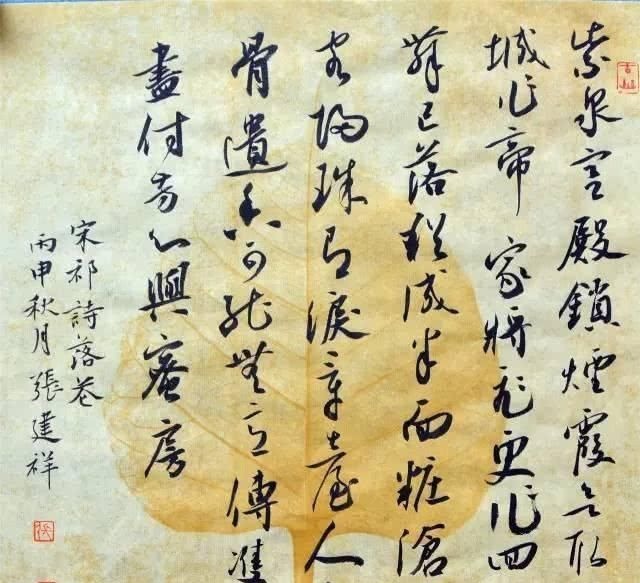 紫泉宮殿鎖煙霞欲取
城作帝家將飛更作回
舞已落猶成半面粧滄
客歸珠有淚章臺人
骨遺香可能無意傳雙
盡付芳心與蜜房
宋祁詩落花
丙申秋月張建祥